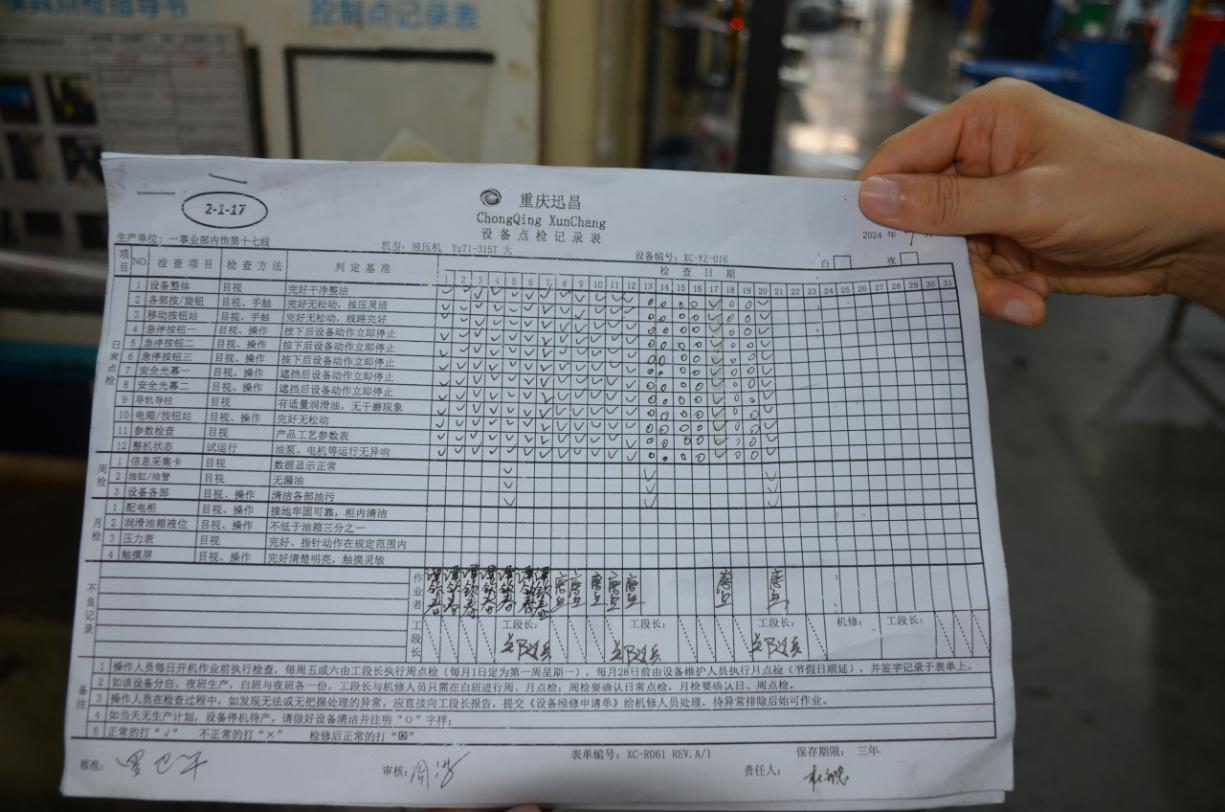 模具点检指导书
控制点记录表
2-1-17
重庆迅昌
ChongQing XunChang
设备点检记录表
2024 年 7 月
生产单位：一事业部内饰第十七线 机型：液压机 Yz71-315T 大 设备编号：XC-YZ-016 白 夜
项目 NO. 检查项目 检查方法 判定基准 检查日期
1 2 3 4 5 6 7 8 9 10 11 12 13 14 15 16 17 18 19 20 21 22 23 24 25 26 27 28 29 30 31
日常点检
1 设备整体 目视 完好干净整洁
2 各部按/旋钮 目视、手触 完好无松动，按压灵活
3 移动按钮站 目视、手触 完好无松动，线路完好
4 急停按钮一 目视、操作 按下后设备动作立即停止
5 急停按钮二 目视、操作 按下后设备动作立即停止
6 急停按钮三 目视、操作 按下后设备动作立即停止
7 安全光幕一 目视、操作 遮挡后设备动作立即停止
8 安全光幕二 目视、操作 遮挡后设备动作立即停止
9 导轨导柱 目视 有适量润滑油，无干磨现象
10 电箱/按钮站 目视、操作 完好无松动
11 参数检查 目视 产品工艺参数表
12 整机状态 试运行 油泵、电机等运行无异响
周检
1 信息采集卡 目视 数据显示正常
2 油缸/油管 目视 无漏油
3 设备各部 目视、操作 清洁各部油污
月检
1 配电柜 目视、操作 接地牢固可靠，柜内清洁
2 润滑油箱液位 目视、操作 不低于油箱三分之一
3 压力表 目视、操作 完好、指针动作在规定范围内
4 触摸屏 目视、操作 完好清楚明亮，触摸灵敏
不良记录
作业者
工段长 工段长： 工段长： 工段长： 机修： 工段长：
备注
1 操作人员每日开机作业前执行检查，每周五或六由工段长执行周点检（每月1日定为第一周星期一），每月28日前由设备维护人员执行月点检（节假日顺延），并签字记录于表单上。
2 如该设备分白、夜班生产，白班与夜班各一份，工段长与机修人员只需在白班进行周、月点检；周检要确认日常点检，月检要确认日、周点检。
3 操作人员在检查过程中，如发现无法或无把握处理的异常，应直接向工段长报告，提交《设备维修申请单》给机修人员处理，待异常排除后始可作业。
4 如当天无生产计划，设备停机待产，请做好设备清洁并注明“O”字样；
5 正常的打“√” 不正常的打“×” 检修后正常的打“☒”
表单编号：XC-R061 REV.A/1 保存期限：三年
核准： 审核： 责任人：